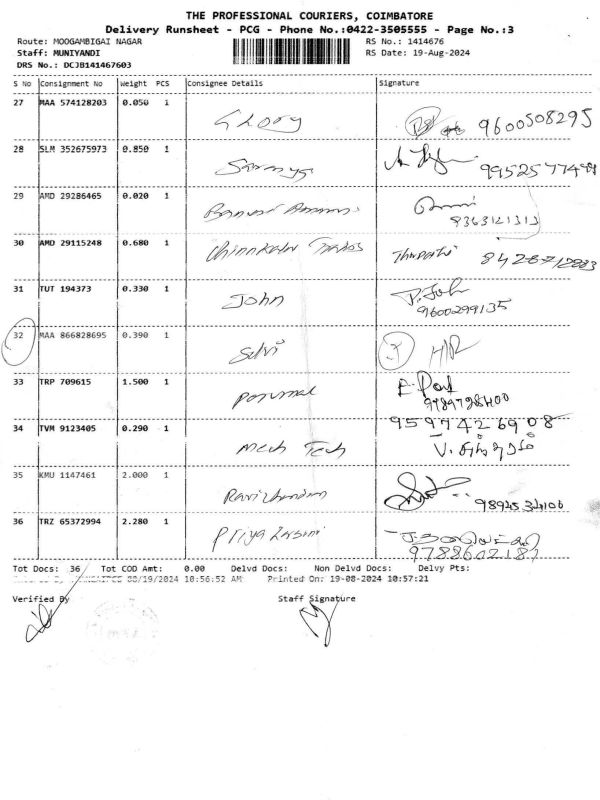 THE PROFESSIONAL COURIERS, COIMBATORE
Delivery Runsheet - PCG - Phone No.:0422-3505555 - Page No.:3
Route: MOOGAMBIGAI NAGAR RS No.: 1414676
Staff: MUNIYANDI RS Date: 19-Aug-2024
DRS No.: DCJB141467603
S No Consignment No Weight PCS Consignee Details Signature
27 MAA 574128203 0.050 1 Glory 9600508295
28 SLM 352675973 0.850 1
29 AMD 29286465 0.020 1 8363121313
30 AMD 29115248 0.680 1 Thirupathi 8428712883
31 TUT 194373 0.330 1 John P. John
9600299135
32 MAA 866828695 0.390 1 Selvi 3 H/R
33 TRP 709615 1.500 1 Perumal
34 TVM 9123405 0.290 1 Mech Tech 9597426908
35 KMU 1147461 2.000 1 Ravichandran
36 TRZ 65372994 2.280 1 Priya 9788602187
Tot Docs: 36 Tot COD Amt: 0.00 Delvd Docs: Non Delvd Docs: Delvy Pts:
08/19/2024 10:56:52 AM Printed On: 19-08-2024 10:57:21
Verified By Staff Signature